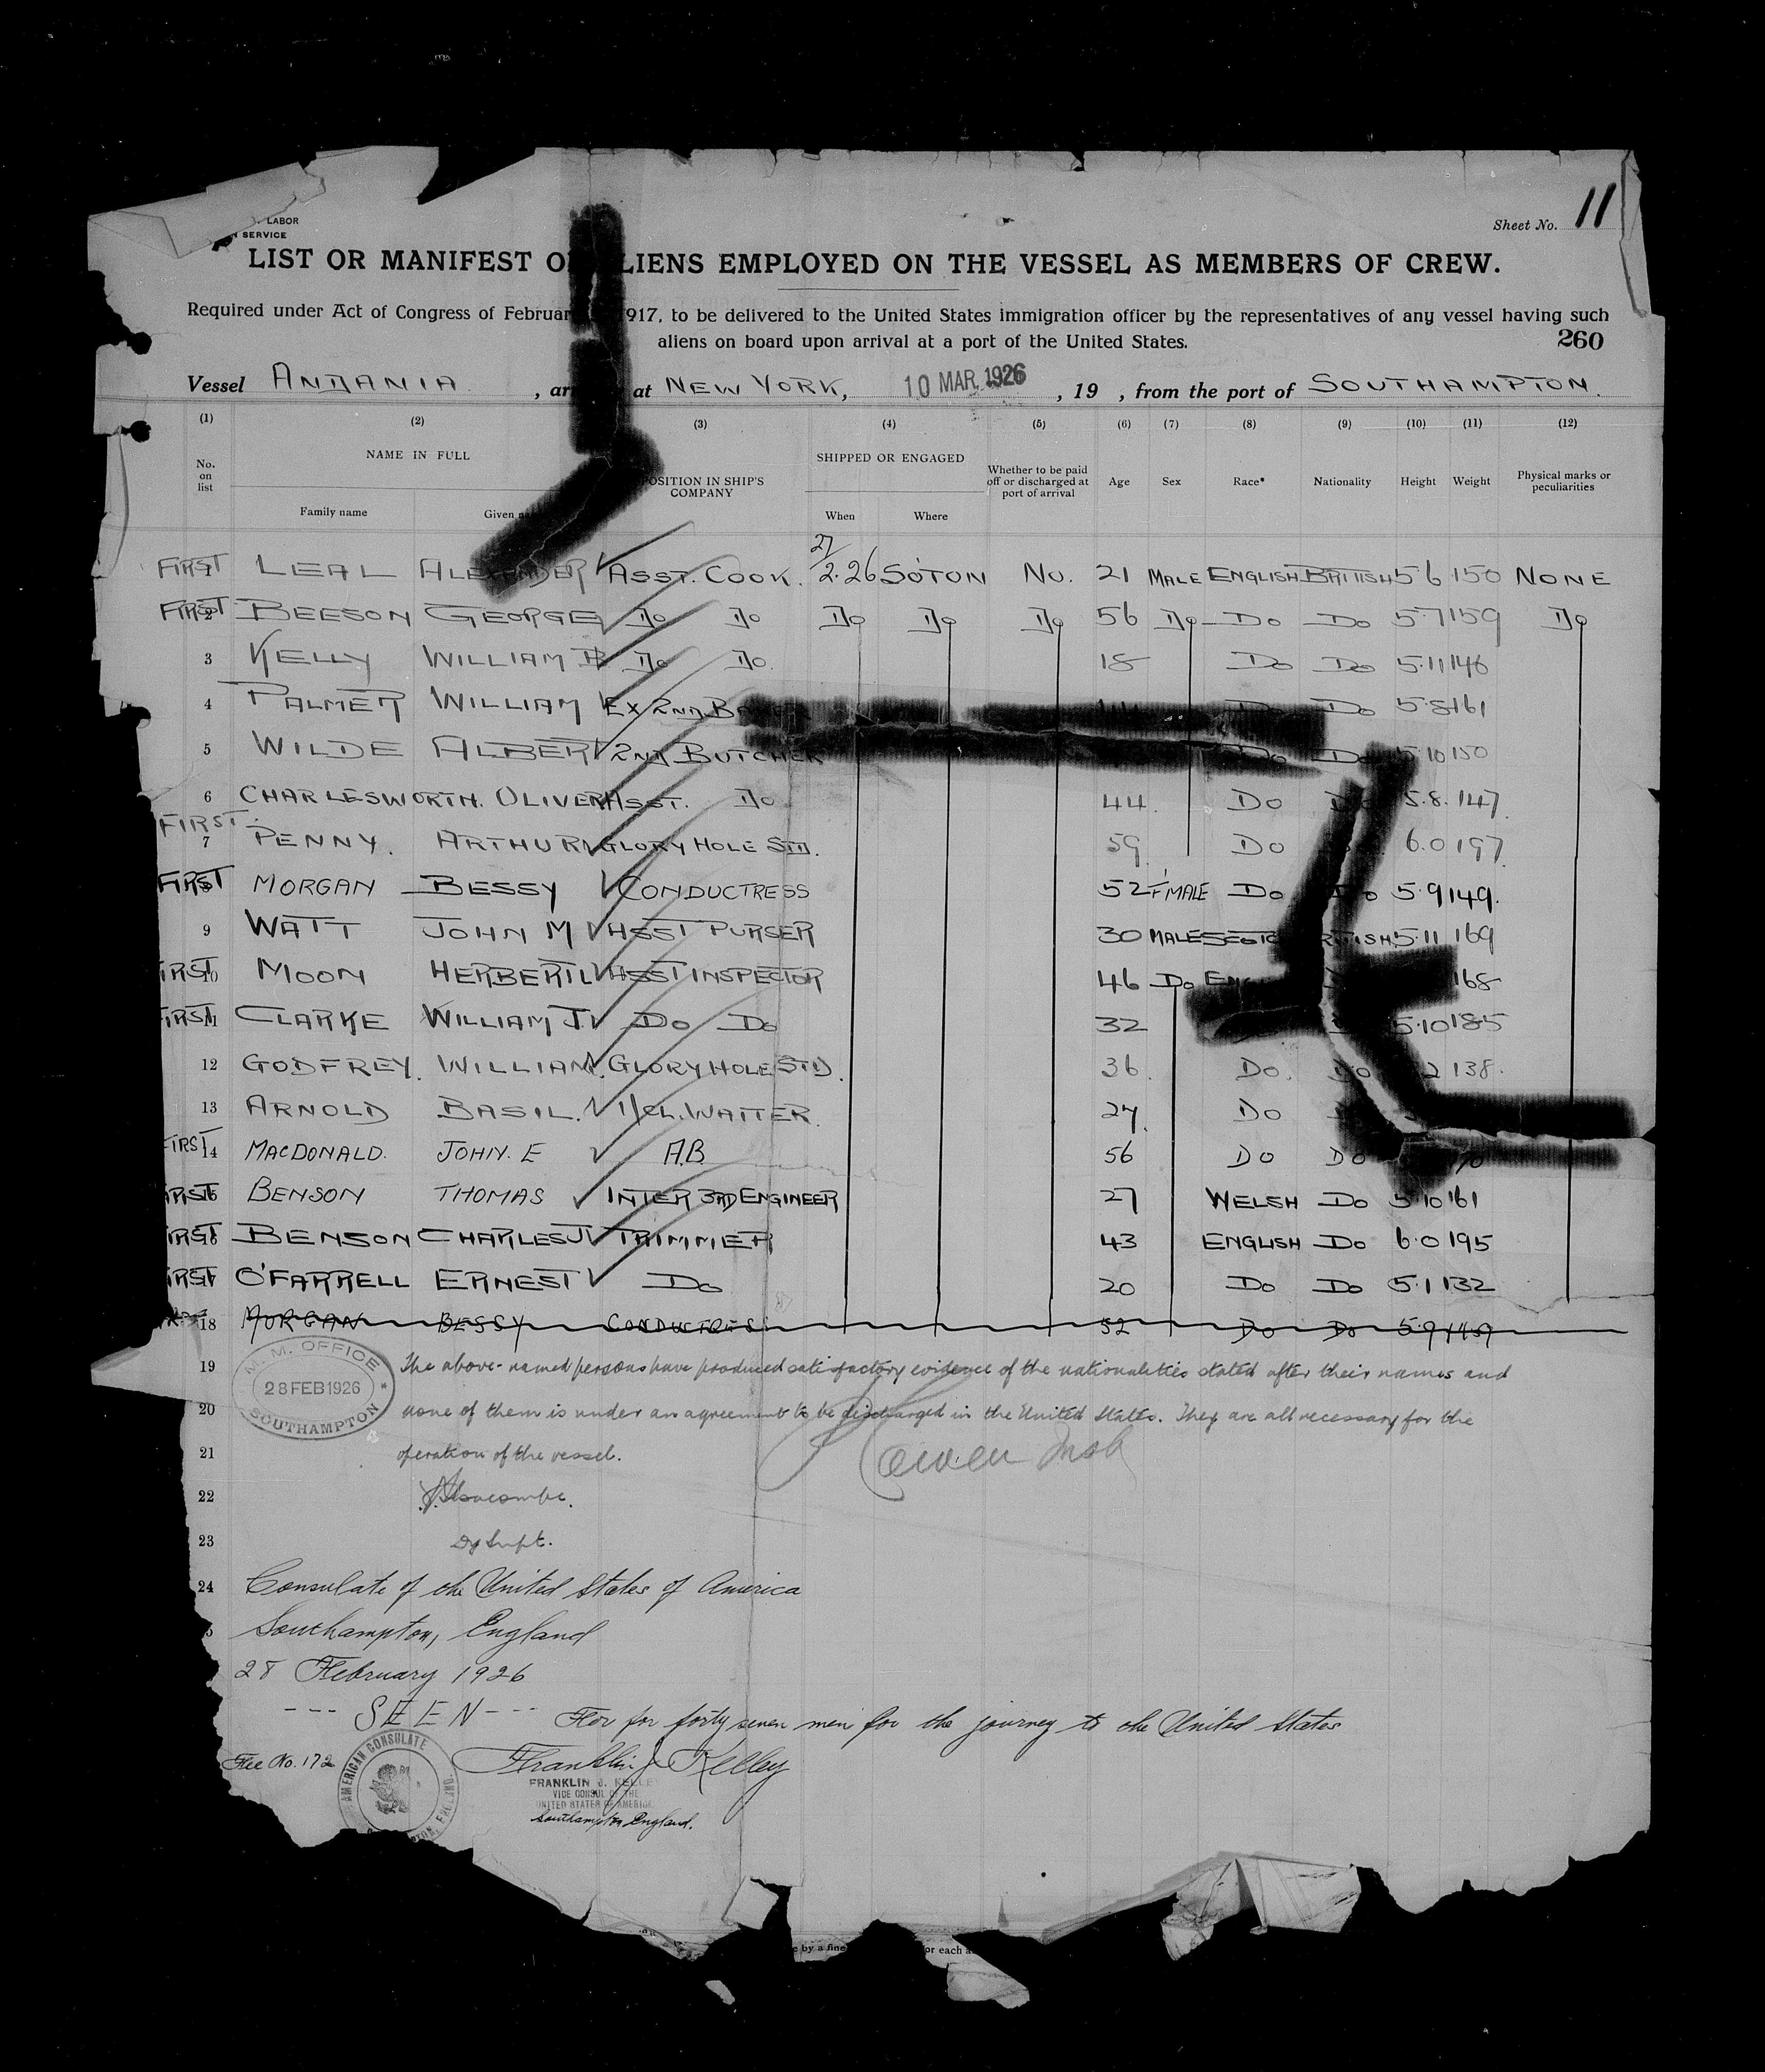 LABOR
SERVICE
Sheet No. 11
LIST OR MANIFEST O LIENS EMPLOYED ON THE VESSEL AS MEMBERS OF CREW.
Required under Act of Congress of Februar 917, to be delivered to the United States immigration officer by the representatives of any vessel having such
aliens on board upon arrival at a port of the United States.
260
Vessel ANDANIA , ar at NEW YORK, 10 MAR. 1926 , 19 , from the port of SOUTHAMPTON.
(1) (2) (3) (4) (5) (6) (7) (8) (9) (10) (11) (12)
No. on list NAME IN FULL Family name Given na OSITION IN SHIP'S COMPANY SHIPPED OR ENGAGED When Where Whether to be paid off or discharged at port of arrival Age Sex Race* Nationality Height Weight Physical marks or peculiarities
FIRST 1 LEAL ALEXANDER ASST. COOK. 27/2.26 SOTON NO. 21 MALE ENGLISH BRITISH 5 6 150 NONE
FIRST 2 BEESON GEORGE Do Do Do Do Do 56 Do Do Do 5.7 159 Do
3 KELLY WILLIAM B Do Do. 18 Do Do 5.11 146
4 PALMER WILLIAM EX 2ND BAKER Do Do 5.8 161
5 WILDE ALBERT 2ND BUTCHER Do Do 5.10 150
6 CHARLESWORTH. OLIVER ASST. Do 44. Do D 5.8. 147
FIRST. 7 PENNY. ARTHUR GLORY HOLE STD. 59. Do 6.0 197
FIRST 8 MORGAN BESSY CONDUCTRESS 52 F'MALE Do Do 5.9 149.
9 WATT JOHN M ASST PURSER 30 MALE SCOTCH BRITISH 5.11 169
FIRST 10 MOON HERBERT L ASST INSPECTOR 46 Do ENG 168
FIRST 11 CLARKE WILLIAM J. Do Do 32 5.10 185
12 GODFREY. WILLIAM. GLORY HOLE STD. 36. Do. Do 2 138.
13 ARNOLD BASIL. 1/CL. WAITER. 27. Do
FIRST 14 MACDONALD. JOHN. E A.B. 56 Do Do
FIRST 15 BENSON THOMAS INTER 3RD ENGINEER 27 WELSH Do 5.10 161
FIRST 16 BENSON CHARLES J TRIMMER 43 ENGLISH Do 6.0 195
FIRST 17 O'FARRELL ERNEST Do 20 Do Do 5.1 132
18 MORGAN BESSY CONDUCTRESS 52 Do Do 5.9 149
19 The above-named persons have produced satisfactory evidence of the nationalities stated after their names and
M. M. OFFICE
28 FEB 1926
SOUTHAMPTON
20 none of them is under an agreement to be discharged in the United States. They are all necessary for the
21 operation of the vessel.
22
23 Dy Supt.
24 Consulate of the United States of America
Southampton, England
28 February 1926
--- SEEN --- For for forty seven men for the journey to the United States
Fee No. 172 Franklin J Kelley
AMERICAN CONSULATE
FRANKLIN J. KELLE
VICE CONSUL OF THE
UNITED STATES OF AMERICA
Southampton England.
e by a fine or each a